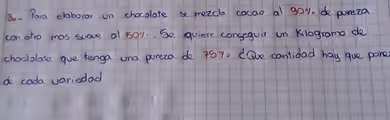 3.- Para elaborar un chocolate se mezcla cacao al 90% de pureza
con otro mas suave al 50%. Se quiere conseguir un Kilogramo de
chocolate que tenga una pureza de 75% ¿Que cantidad hay que poner
de cada variedad